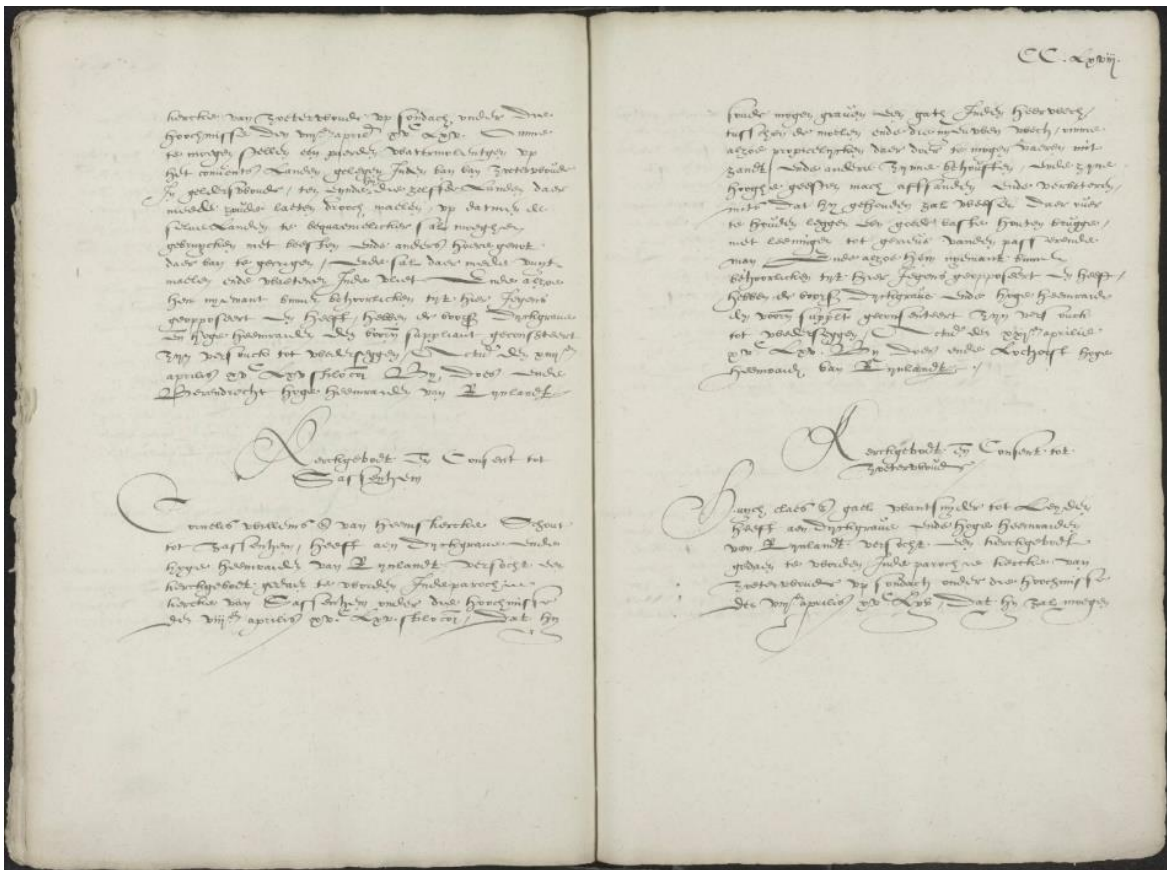 kercke van Zoeterwoude up sondach onder die
hoochmisse den viijen april xvc Lxv. Omme
te moegen stellen een paerden watermolentgen up
het convents Landen gelegen Inden ban van Zoeterwoude
In gelderswoude, ten eynde die zelffde Landen daer
meede zoude laeten drooch maelen, up datmen de
selve Landen te bequaemelicker sal moeghen
gebruycken met beesten ende anders hoere genot
daer van te gecrigen, Ende sal daer mede uunt
maelen ende wateren Inde vliet Ende alzoe
hem nyemant binnen behoorlicken tyt hier Jegens
geopposeert En heeft, hebben de voorsz Dyckgrave
En hoge heemraeden den voorn suppliant geconsenteert
Zyn versouck tot wedersegen, Actum den
aprilis xvc Lxv stilo com By, Does ende
Berendrecht hoge heemraeden van Rynlandt
Kerckgebodt En Consent tot
Sassenhem
Cornelis Willems z van heemskercke Schout
tot Sassenhem, heeft aen Dyckgrave ende
hoge heemraeden van Rynlandt versocht een
kerckgebodt gedaen te worden Inde parochie
kercke van Sassenhem onder die hoochmisse
den viijen aprilis xvc Lxv stilo com, Dat hy
CC. Lxviij.
soude mogen graven een gath Inden heerwech,
tusschen de moelen ende die nyeuwen wech, omme
alzoe propelicken daer doer te mogen vaeren mit
zandt Ende andere zyne behouften, Ende zyne
hooghe geesten mach affsanden Ende verbeteren,
mits Dat hy gehouden zal wesen daer over
te houden leggen een goede vaste houten brugge,
met leeningen tot gerieve vanden passerende
man, Ende alzoe hem nyemant binnen
behoorlicken tyt hier Jegens geopposeert En heeft,
hebben de voorsz Dyckgrave ende hoge heemraeden
den voorn suppliant geconsenteert Zyn versouck
tot wedersegen, Actum den aprilis
xvc Lxv. By Does ende Lochorst hoge
heemraeden van Rynlandt.
Kerckgebodt En Consent tot
Zoeterwoude
Huych claes z gael wantsnyder tot Leyden
heeft aen Dyckgrave ende hoge heemraeden
van Rynlandt versocht een kerckgebodt
gedaen te worden Inde parochie kercke van
Zoeterwoude up sondach onder die hoochmisse
den viijen aprilis xvc Lxv, Dat hy zal moegen